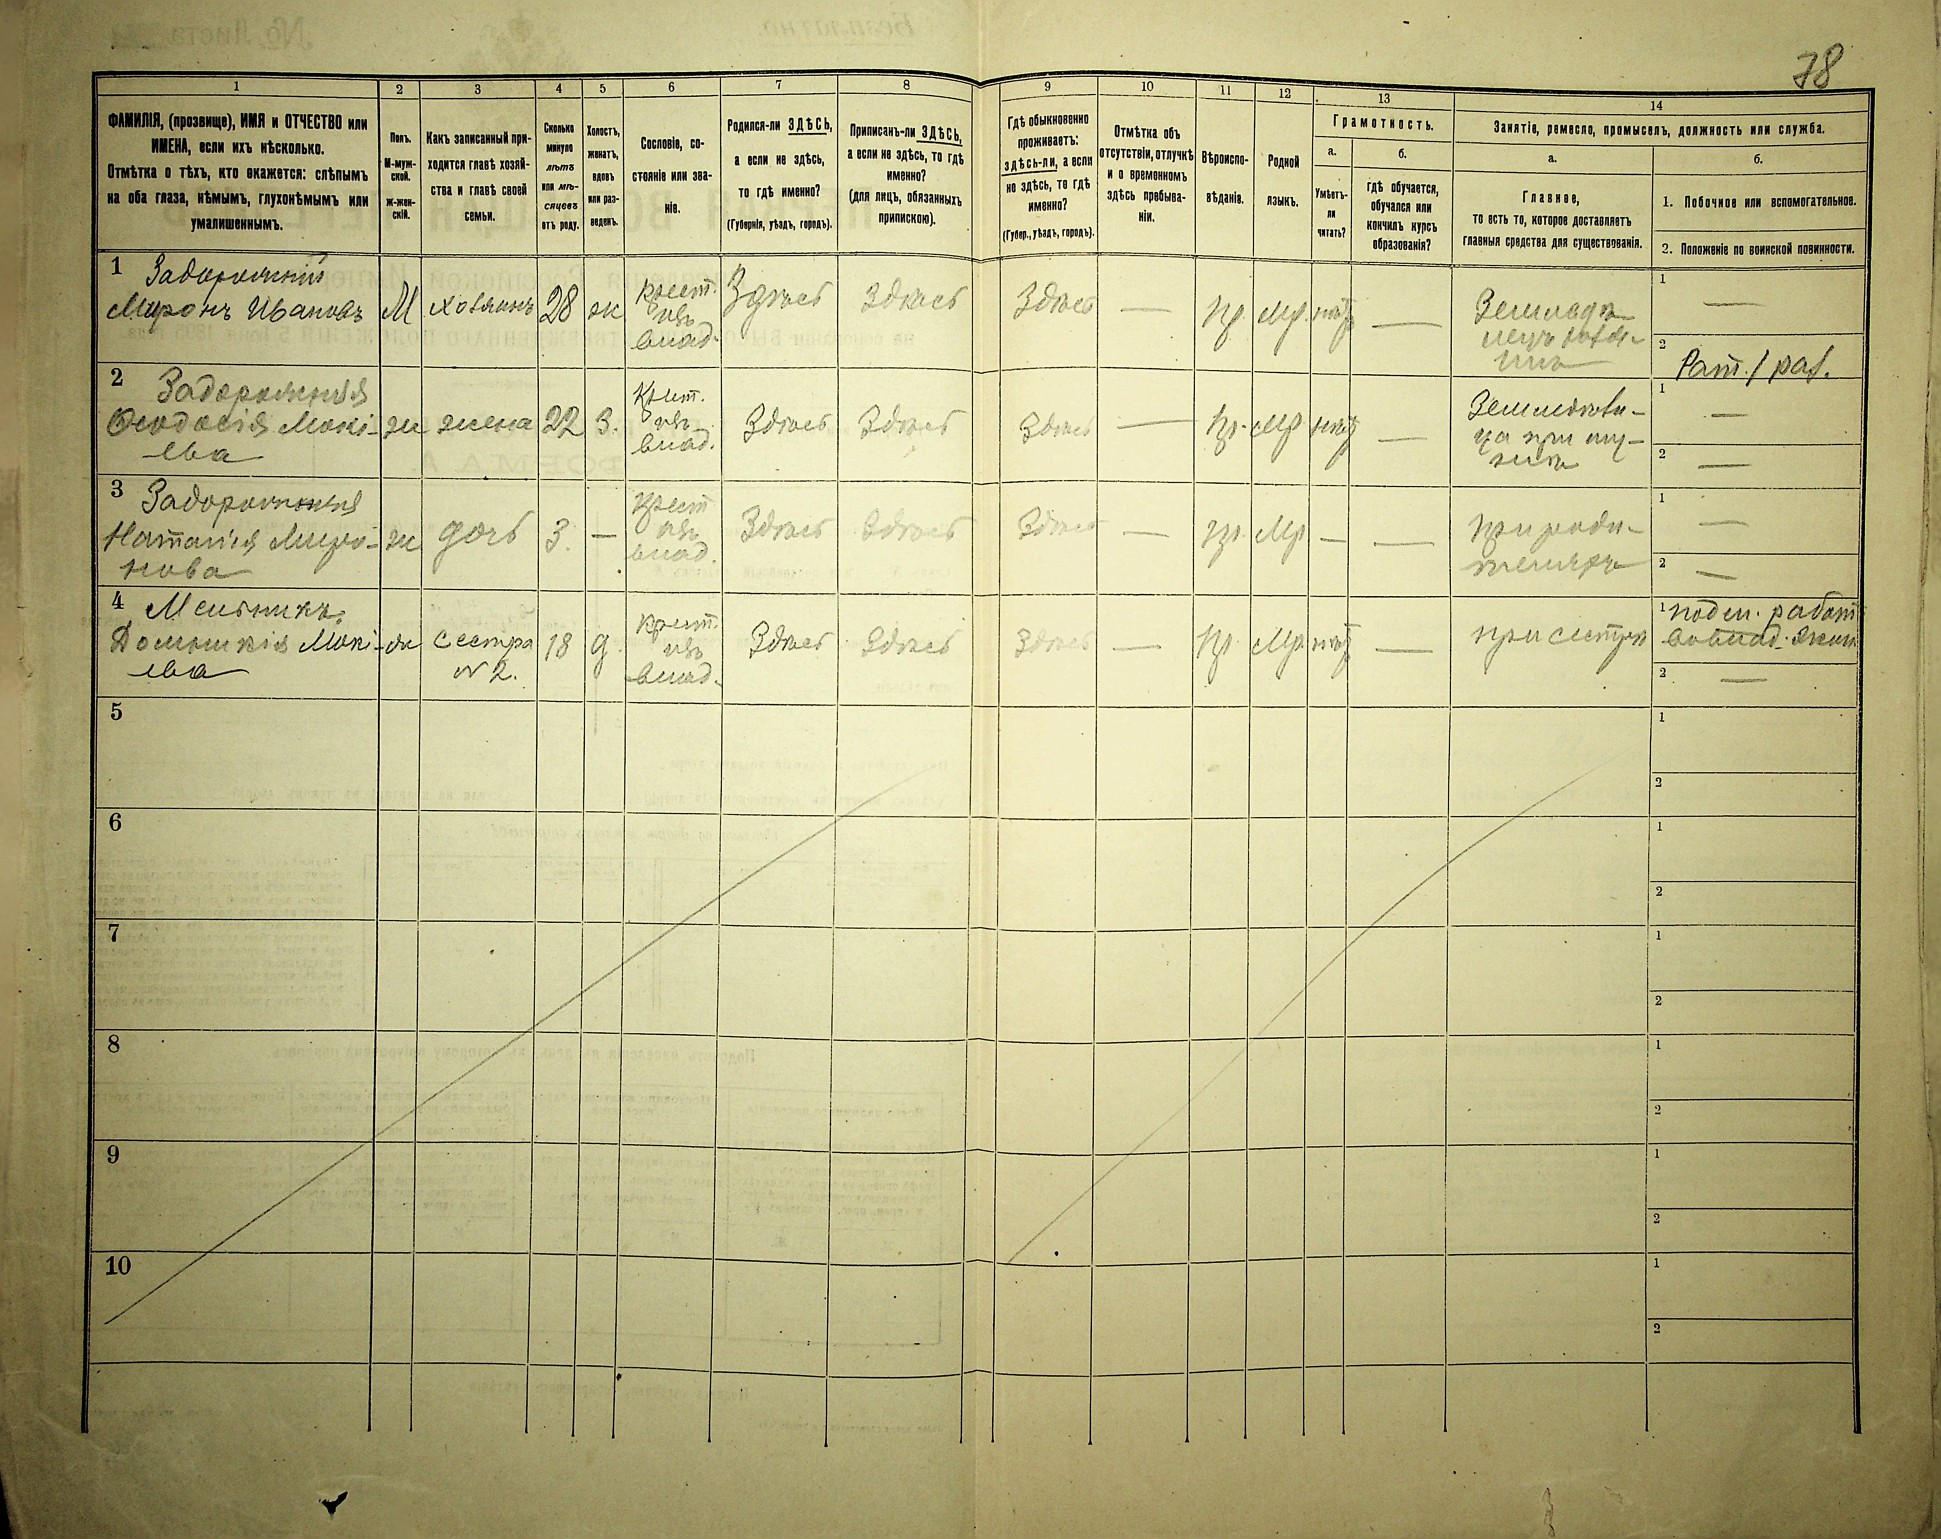 78
1 2 3 4 5 6 7 8 9 10 11 12 13 14
ФАМИЛІЯ, (прозвище), ИМЯ и ОТЧЕСТВО или
ИМЕНА, если ихъ нѣсколько.
Отмѣтка о тѣхъ, кто окажется: слѣпымъ
на оба глаза, нѣмымъ, глухонѣмымъ или
умалишеннымъ.
Полъ.
М-муж-
ской.
Ж-жен-
скій.
Какъ записанный при-
ходится главѣ хозяй-
ства и главѣ своей
семьи.
Сколько
минуло
лѣтъ
или мѣ-
сяцевъ
отъ роду.
Холостъ,
женатъ,
вдовъ
или раз-
веденъ.
Сословіе, со-
стояніе или зва-
ніе.
Родился-ли ЗДѢСЬ,
а если не здѣсь,
то гдѣ именно?
(Губернія, уѣздъ, городъ).
Приписанъ-ли ЗДѢСЬ,
а если не здѣсь, то гдѣ
именно?
(для лицъ, обязанныхъ
припискою).
Гдѣ обыкновенно
проживаетъ:
здѣсь-ли, а если
не здѣсь, то гдѣ
именно?
(Губер., уѣздъ, городъ).
Отмѣтка объ
отсутствіи, отлучкѣ
и о временномъ
здѣсь пребыва-
ніи.
Вѣроиспо-
вѣданіе.
Родной
языкъ.
Грамотность.
а.
Умѣетъ-
ли
читать?
б.
гдѣ обучается,
обучался или
кончилъ курсъ
образованія?
Занятіе, ремесло, промыселъ, должность или служба.
а.
Главное,
то есть то, которое доставляетъ
главныя средства для существованія.
б.
1. Побочное или вспомогательное.
2. Положеніе по воинской повинности.
1 Задорожній
Миронъ Ивановъ
М
хозяинъ
28
ж
Крест.
изъ
влад.
Здѣсь
Здѣсь
Здѣсь
—
пр.
Мр.
нѣтъ
—
Земледѣ-
лецъ хозя-
инъ
1 —
2 Рат. 1 раз.
2 Задорожняя
Феодосія Мокі-
ева
ж
жена
22
З.
Крест.
изъ
влад.
Здѣсь
Здѣсь
Здѣсь
—
пр.
Мр
нѣтъ
—
при му-
жѣ
1 —
2 —
3 Задорожняя
Наталія Миро-
нова
ж
дочь
3.
—
Крест
изъ
влад.
Здѣсь
Здѣсь
Здѣсь
—
пр.
Мр
—
—
при роди-
теляхъ
1 —
2 —
4 Мельникъ
Домникія Мокі-
ева
ж
сестра
№ 2.
18
д.
Крест.
изъ
влад.
Здѣсь
Здѣсь
Здѣсь
—
пр.
Мр.
нѣтъ
—
при сестрѣ
1 поден. работ
2 —
5
1
2
6
1
2
7
1
2
8
1
2
9
1
2
10
1
2